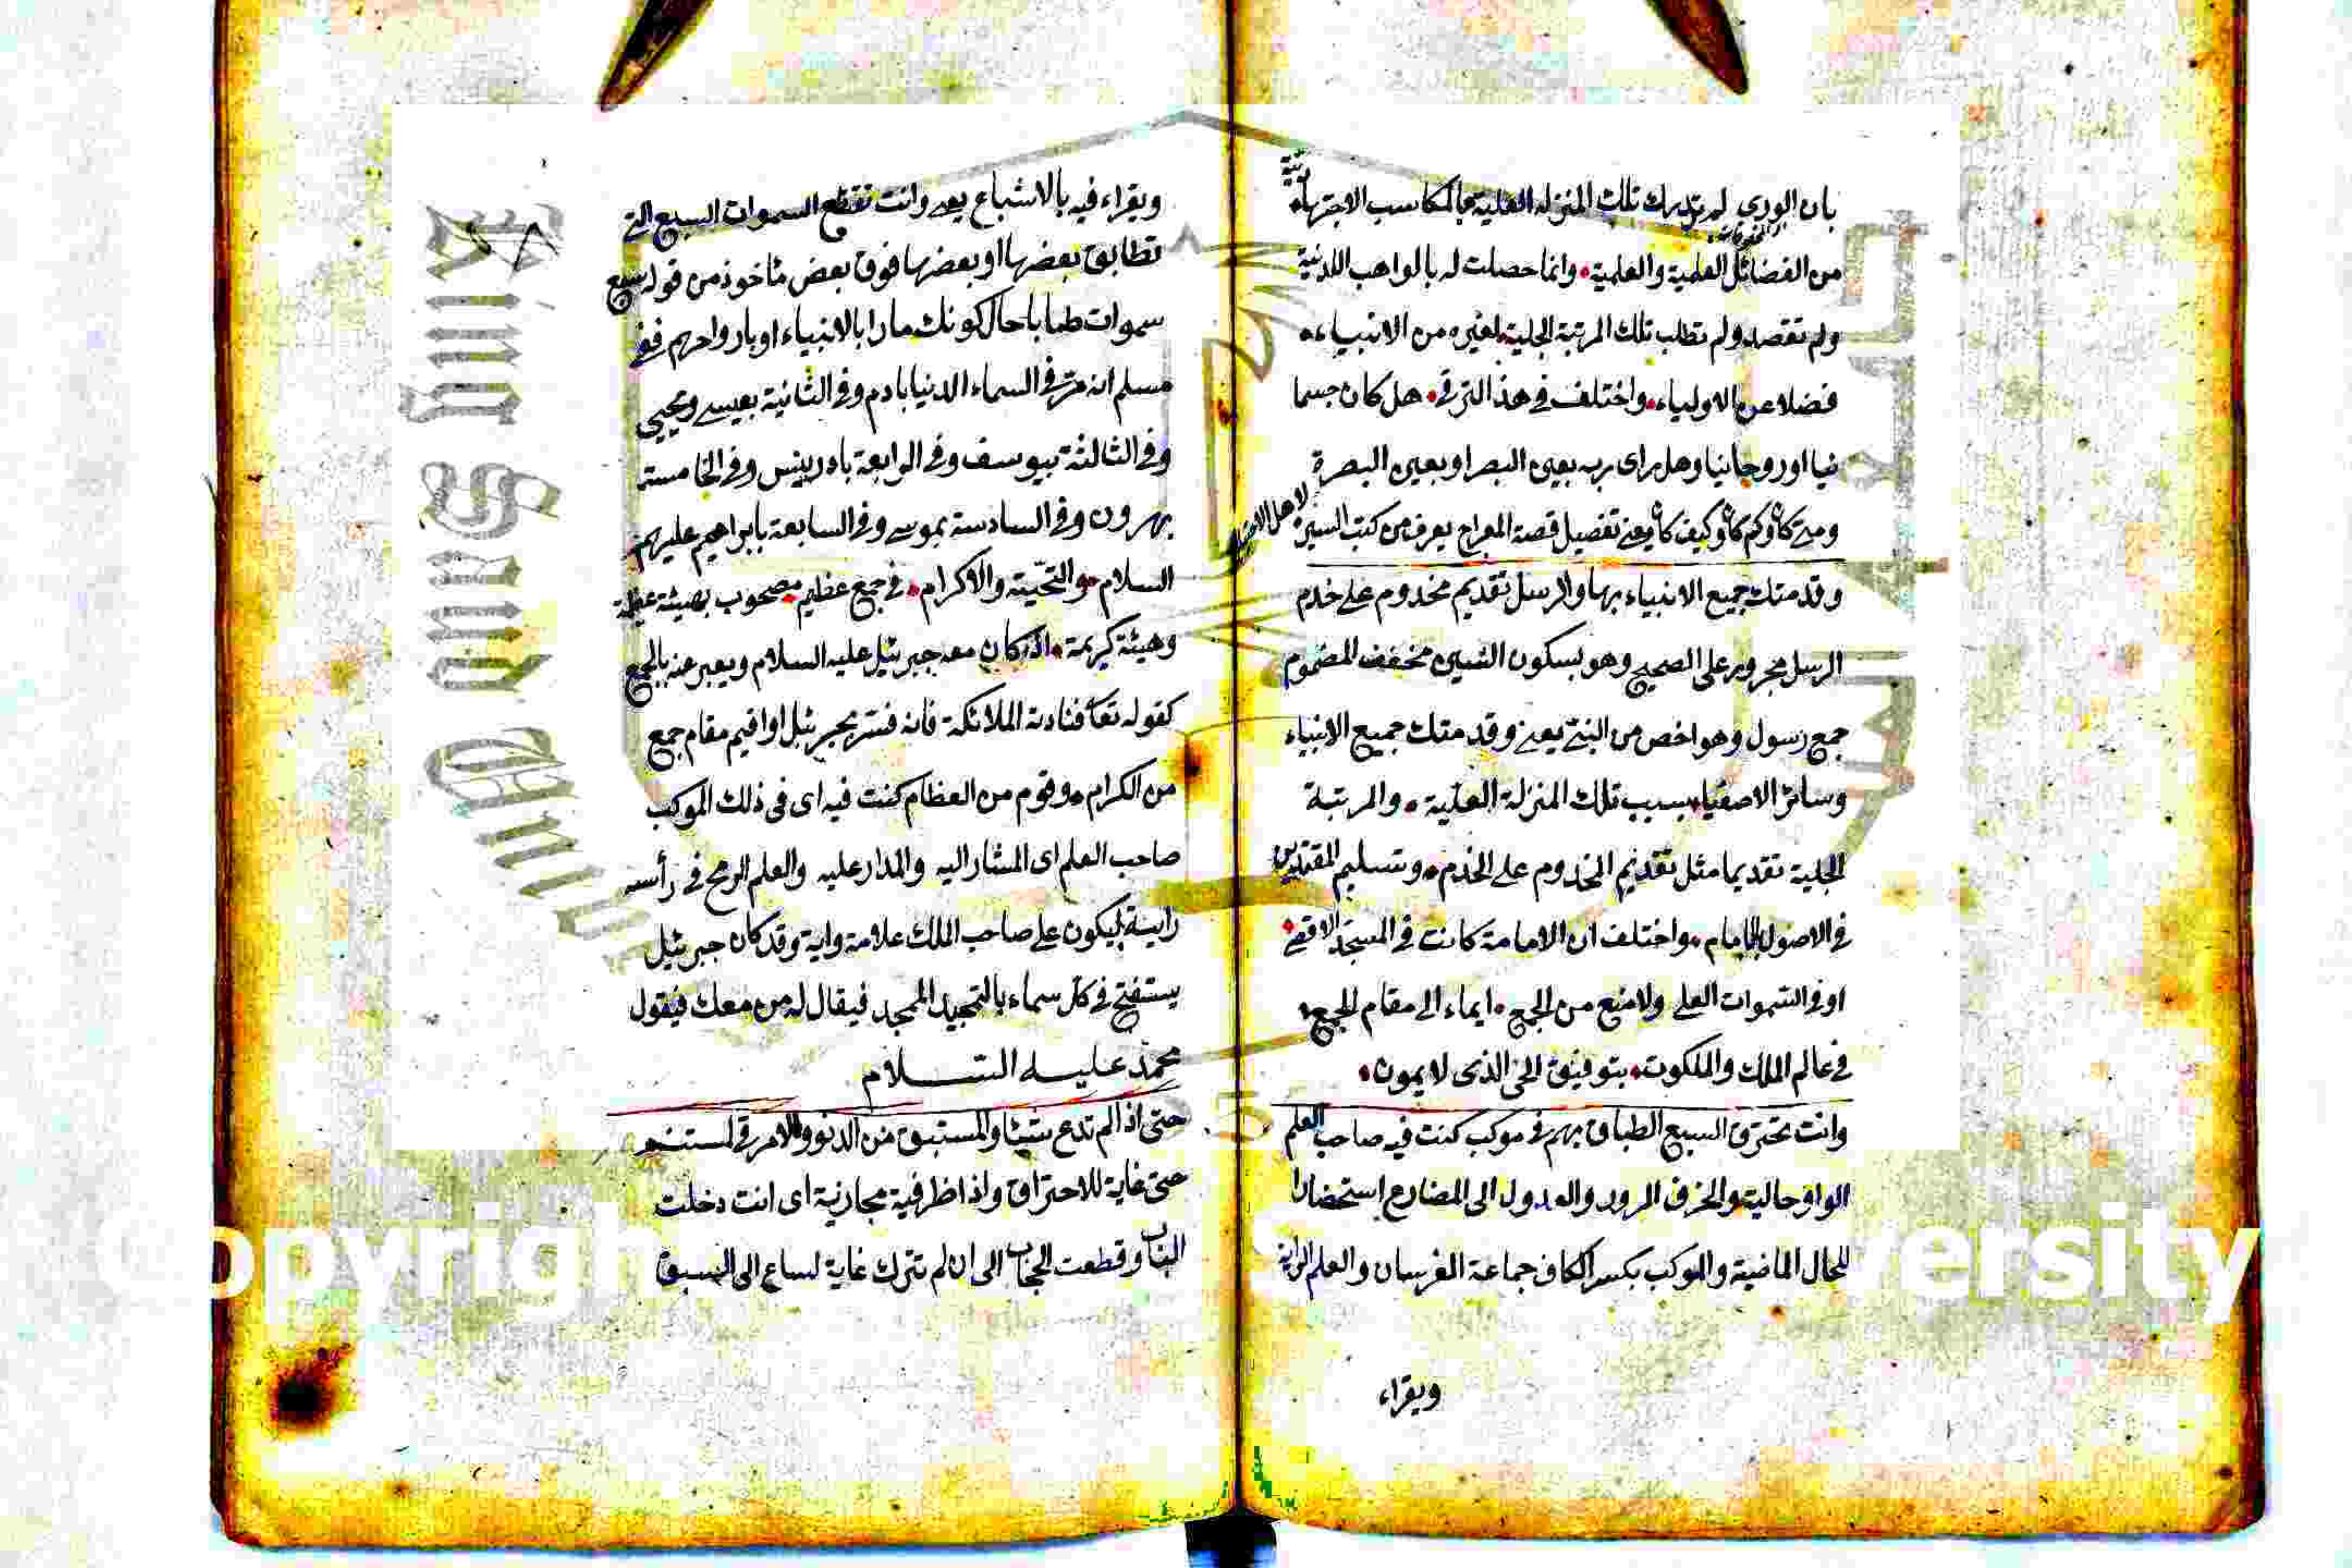 بان الورى لم تدرك تلك المنزلة العلية بالمكاسب الاجتهادية
من الفضائل العلمية والعملية وانما حصلت له بالمواهب اللدنية
ولم تقصد ولم تطلب تلك المرتبة الجلية لغيره من الانبياء
فضلا عن الاولياء واختلف في هذا الترقي هل كان جسما
نيا او روحانيا وهل راى ربه بعين البصر او بعين البصرة
ومتى كا وكم كا وكيف كا يعنى تفصيل قصة المعراج يعرف من كتب السير
وقدمتك جميع الانبياء بها والرسل تقديم مخدوم على خدم
الرسل مجرور على الصحيح وهو بسكون السين مخفف المضموم
جمع رسول وهو اخص من النبي يعنى وقدمتك جميع الانبياء
وسائر الاصفياء بسبب تلك المنزلة العلية والمرتبة
الجلية تقديما مثل تقديم المخدوم على الخدم وتسليم المقتدين
في الاصول للامام واختلف ان الامامة كانت في المسجد الاقصى
او في السموات العلى ولا منع من الجمع ايماء الى مقام الجمع
في عالم الملك والملكوت بتوفيق الحى الذى لا يموت
وانت تخترق السبع الطباق بهم في موكب كنت فيه صاحب العلم
الواو حالية والخرق المرور والعدول الى المضارع استحضارا
للحال الماضية والموكب بكسر الكاف جماعة الفرسان والعلم الراية
ويقراء
ويقراء فيه بالاشباع يعنى وانت تقطع السموات السبع التى
تطابق بعضها او بعضها فوق بعض مأخوذ من قوله سبع
سموات طباقا حال كونك مارا بالانبياء او بارواحهم ففى
مسلم انه مر في السماء الدنيا بادم وفي الثانية بعيسى ويحيى
وفي الثالثة بيوسف وفي الرابعة بادريس وفي الخامسة
بهرون وفي السادسة بموسى وفي السابعة بابراهيم عليهم
السلام والتحية والاكرام في جمع عظيم مصحوب بهيئة عظيمة
وهيئة كريمة اذ كان معه جبرئيل عليه السلام ويعبر عنه بالجمع
كقوله تعا فنادته الملائكة فانه فسر بجبرئيل او اقيم مقام جمع
من الكرام وقوم من العظام كنت فيه اى في ذلك الموكب
صاحب العلم اى المشار اليه والمدار عليه والعلم الرمح في رأسه
راية ليكون على صاحب الملك علامة واية وقد كان جبرئيل
يستفتح في كل سماء بالتمجيد الممجد فيقال له من معك فيقول
محمد عليه السلام
حتى اذا لم تدع شيئا لمستبق من الدنو ولا مرقى لمستنم
حتى غاية للاختراق واذا ظرفية مجازية اى انت دخلت
الباب وقطعت الحجاب الى ان لم تترك غاية لساع الى السبق
King Saud Univ
opyrigh
ersity